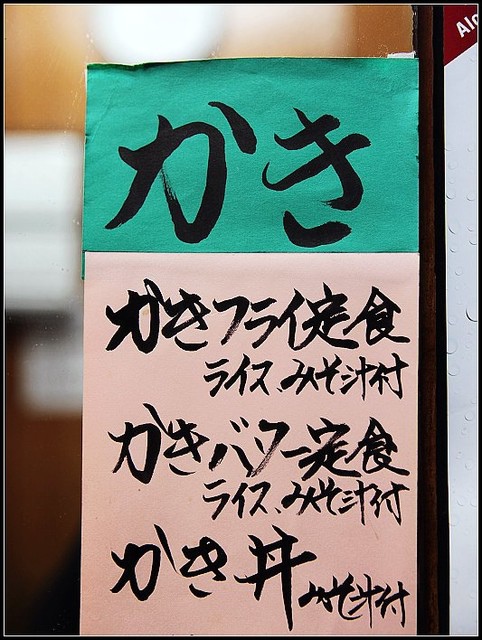 かき
かきフライ定食
ライス、みそ汁付
かきバター定食
ライス、みそ汁付
かき丼 みそ汁付
Alc